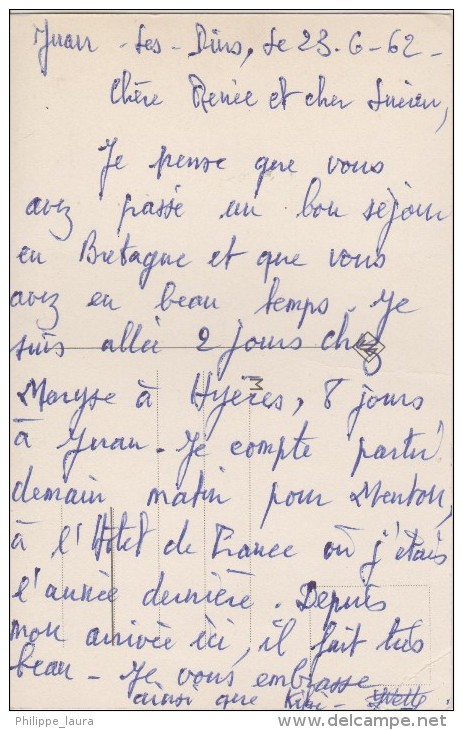 Juan-les-Pins, le 23-6-62-
Chère Renée et cher Lucien,
Je pense que vous
avez passé un bon séjour
en Bretagne et que vous
avez eu beau temps. Je
suis allée 2 jours chez
Maryse à Hyères, 8 jours
à Juan. Je compte partir
demain matin pour Menton,
à l'Hôtel de France où j'étais
l'année dernière. Depuis
mon arrivée ici, il fait très
beau. Je vous embrasse
ainsi que Kiki- Yvette
Philippe_laura